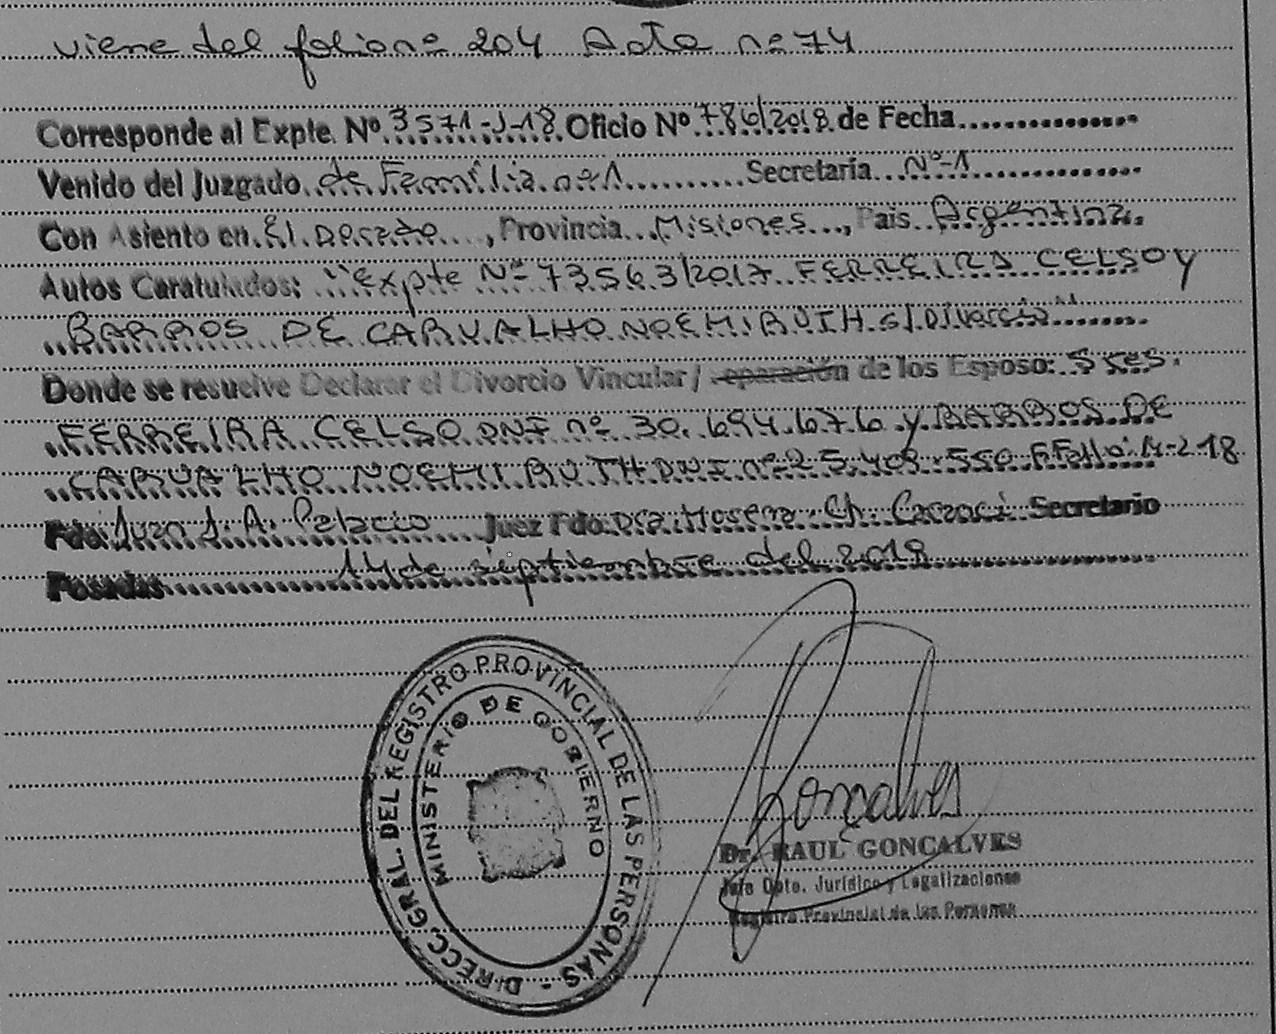 viene del folio nº 204 Acta nº 74
Corresponde al Expte. Nº 3571-J-18 Oficio Nº 786/2018 de Fecha
Venido del Juzgado de Familia nº 1 Secretaría Nº-1
Con Asiento en El Dorado, Provincia Misiones, Pais Argentina.
Autos Caratulados: "Expte Nº 73563/2017 FERREIRA CELSO y
BARROS DE CARVALHO NOEMI RUTH S/Divorcio"
Donde se resuelve Declarar el Divorcio Vincular / separación de los Esposo: Sres.
FERREIRA CELSO DNI nº 30.694.676 y BARROS DE
CARVALHO NOEMI RUTH DNI nº 25.403.550 F. Falló: 14-2-18
Fdo: Juan J. A. Palacio Juez Fdo. Dra. Ch. Secretario
Posadas 14 de septiembre del 2018
DIRECC. GRAL. DEL REGISTRO PROVINCIAL DE LAS PERSONAS
MINISTERIO DE GOBIERNO
Gonçalves
Dr. RAUL GONCALVES
Jefe Dpto. Jurídico y Legalizaciones
Registro Provincial de las Personas